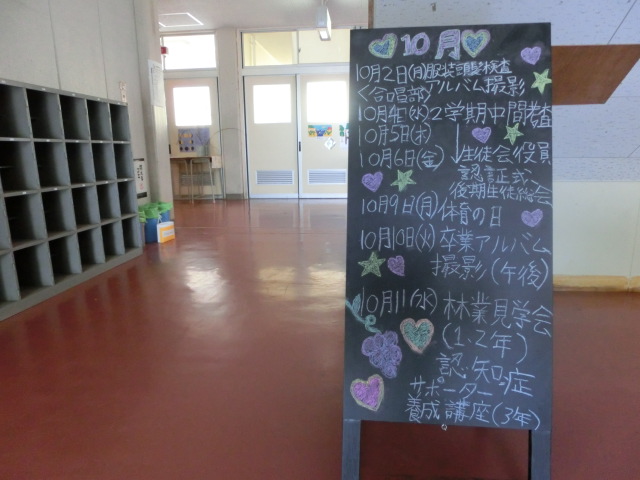 10月
10月2日(月)服装頭髪検査
<合唱部>アルバム撮影
10月4日(水)2学期中間検査
10月5日(木)
10月6日(金)↓生徒会役員
認証式
後期生徒総会
10月9日(月)体育の日
10月10日(火)卒業アルバム
撮影(午後)
10月11(水)林業見学会
(1、2年)
認知症
サポーター
養成講座(3年)